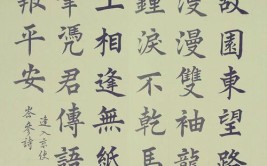 故園東望路
漫漫雙袖龍
鍾淚不乾馬
上相逢無紙
筆憑君傳語
報平安
逢入京使
岑參詩